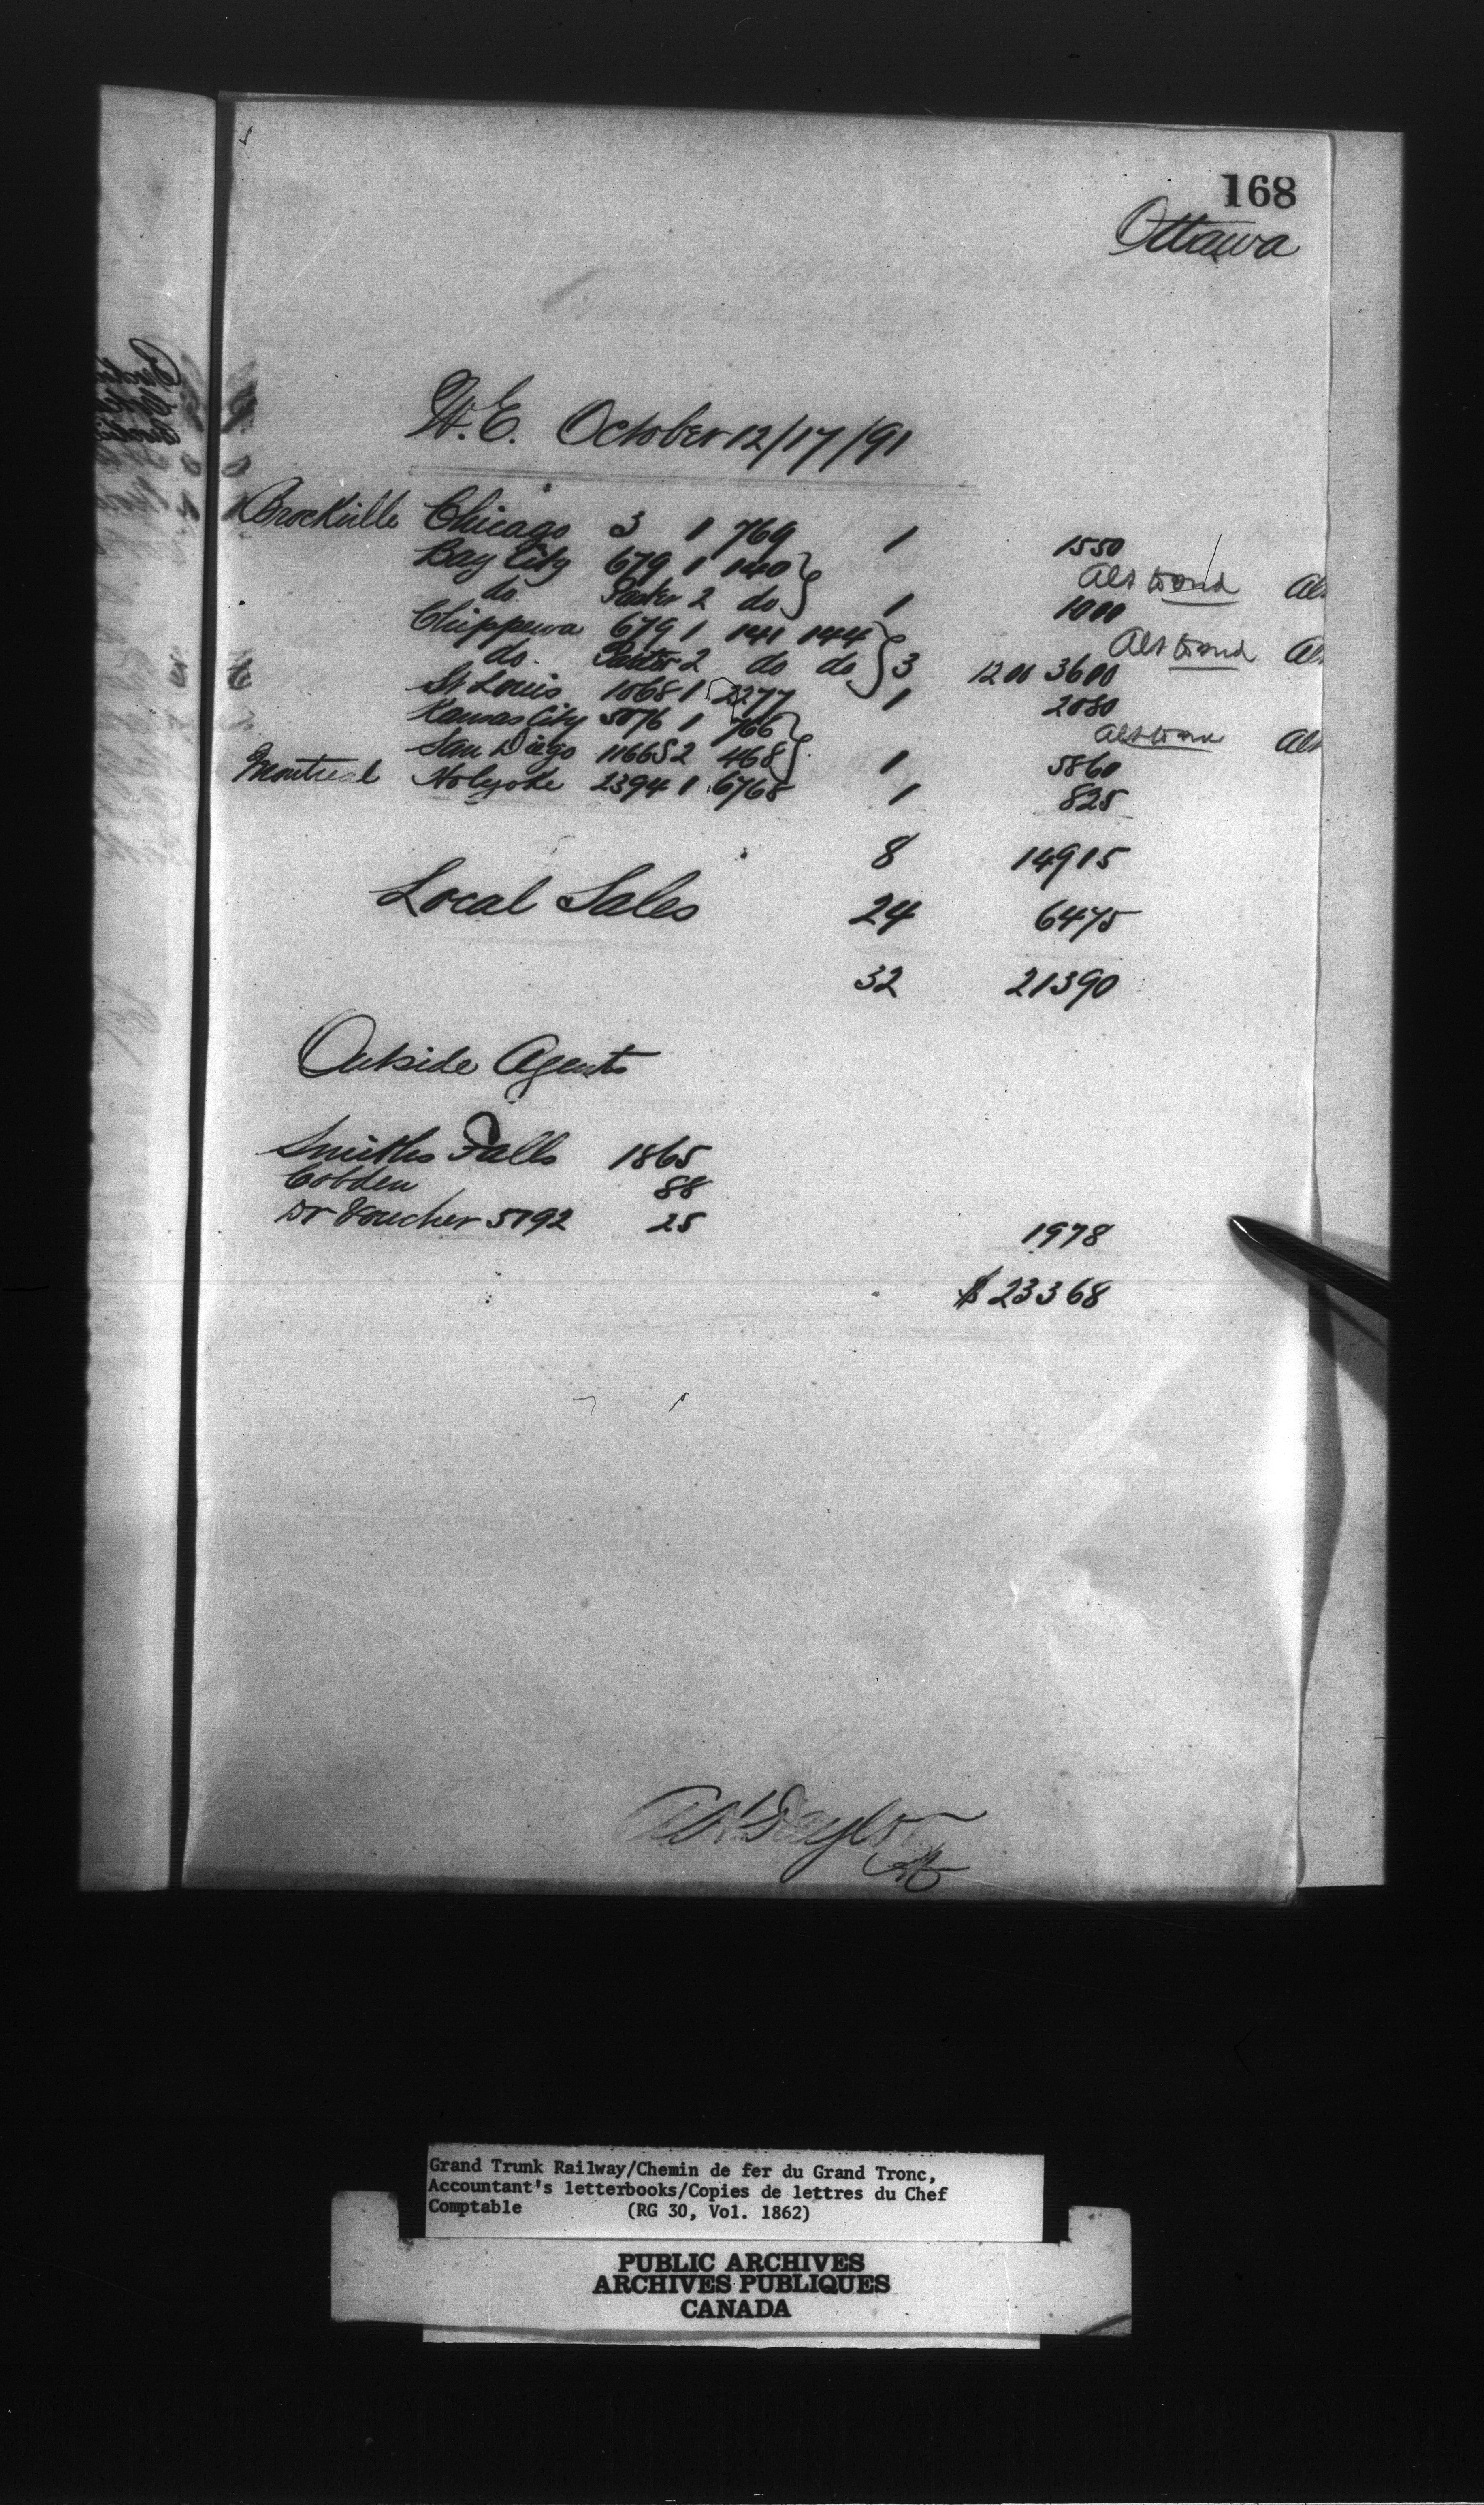 168
Ottawa
W.E. October 12/17/91
Brockville Chicago 3 1 769 1 1550
Bay City 679 1 140
do 2 do 1 1000
Chippewa 679 1 141 144
do. 2 do do 3 1200 3600
St Louis 1068 1 2277 1 2080
Kansas City 5076 1 766
San Diego 11665 2 468 1 5860
Montreal Holyoke 2394 1 6768 1 825
8 14915
Local Sales 24 6475
32 21390
Outside Agents
Smiths Falls 1865
Cobden 88
Dr Voucher 5792 25 1978
$ 23368
Taylor
Grand Trunk Railway/Chemin de fer du Grand Tronc,
Accountant's letterbooks/Copies de lettres du Chef
Comptable (RG 30, Vol. 1862)
PUBLIC ARCHIVES
ARCHIVES PUBLIQUES
CANADA